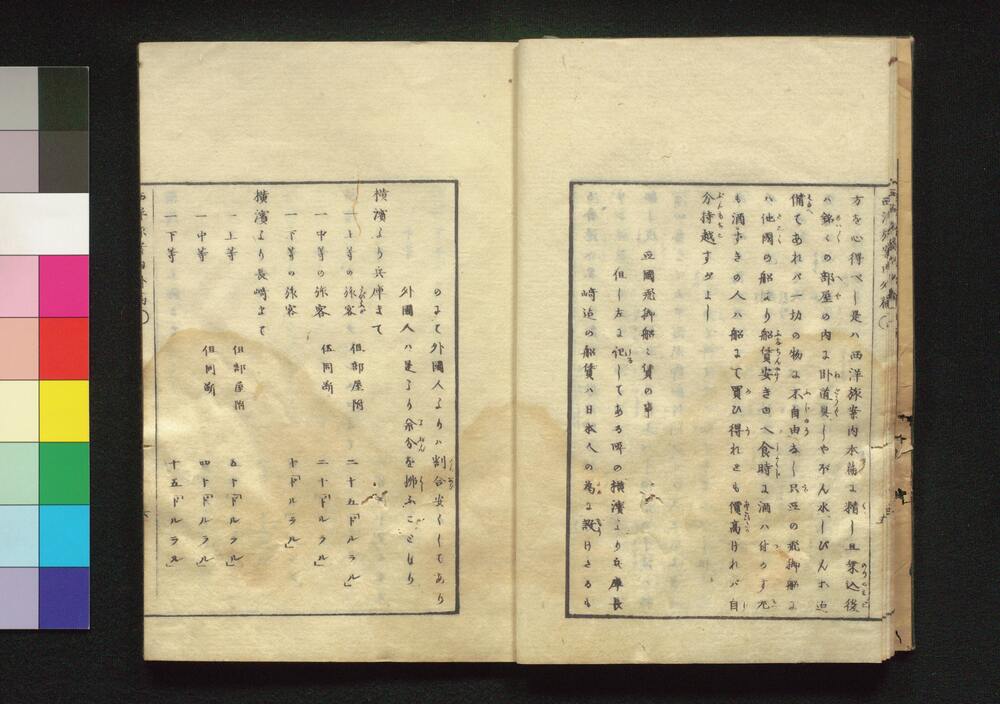 方を心得べし是ハ西洋旅案内本篇に精し且乗込後
ハ銘々の部屋の内に卧道具しやぼん水しびん等迄
備てあれバ一切の物に不自由なし只亞の飛脚船に
ハ他國の船より船賃安きゆへ食時に酒ハ付のす尤
も酒すきの人ハ船にて買ひ得れども價高けれバ自
分持越すがよし
亞國飛脚船々賃の事
但し左に記してある所の横濱より兵庫長
崎迄の船賃ハ日本人の為に設けたるも
のにて外國人よりハ割合安くしてあり
外國人ハ是より余分を拂ふことなり
横濱より兵庫まて
一上等の旅客 但部屋附 二十五「ドルラル」
一中等の旅客 但同断 二十「ドルラル」
一下等の旅客 十「ドルラル」
横濱より長﨑まて
一上等 但部屋附 五十「ドルラル」
一中等 但同断 四十「ドルラル」
一下等 十五「ドルラル」